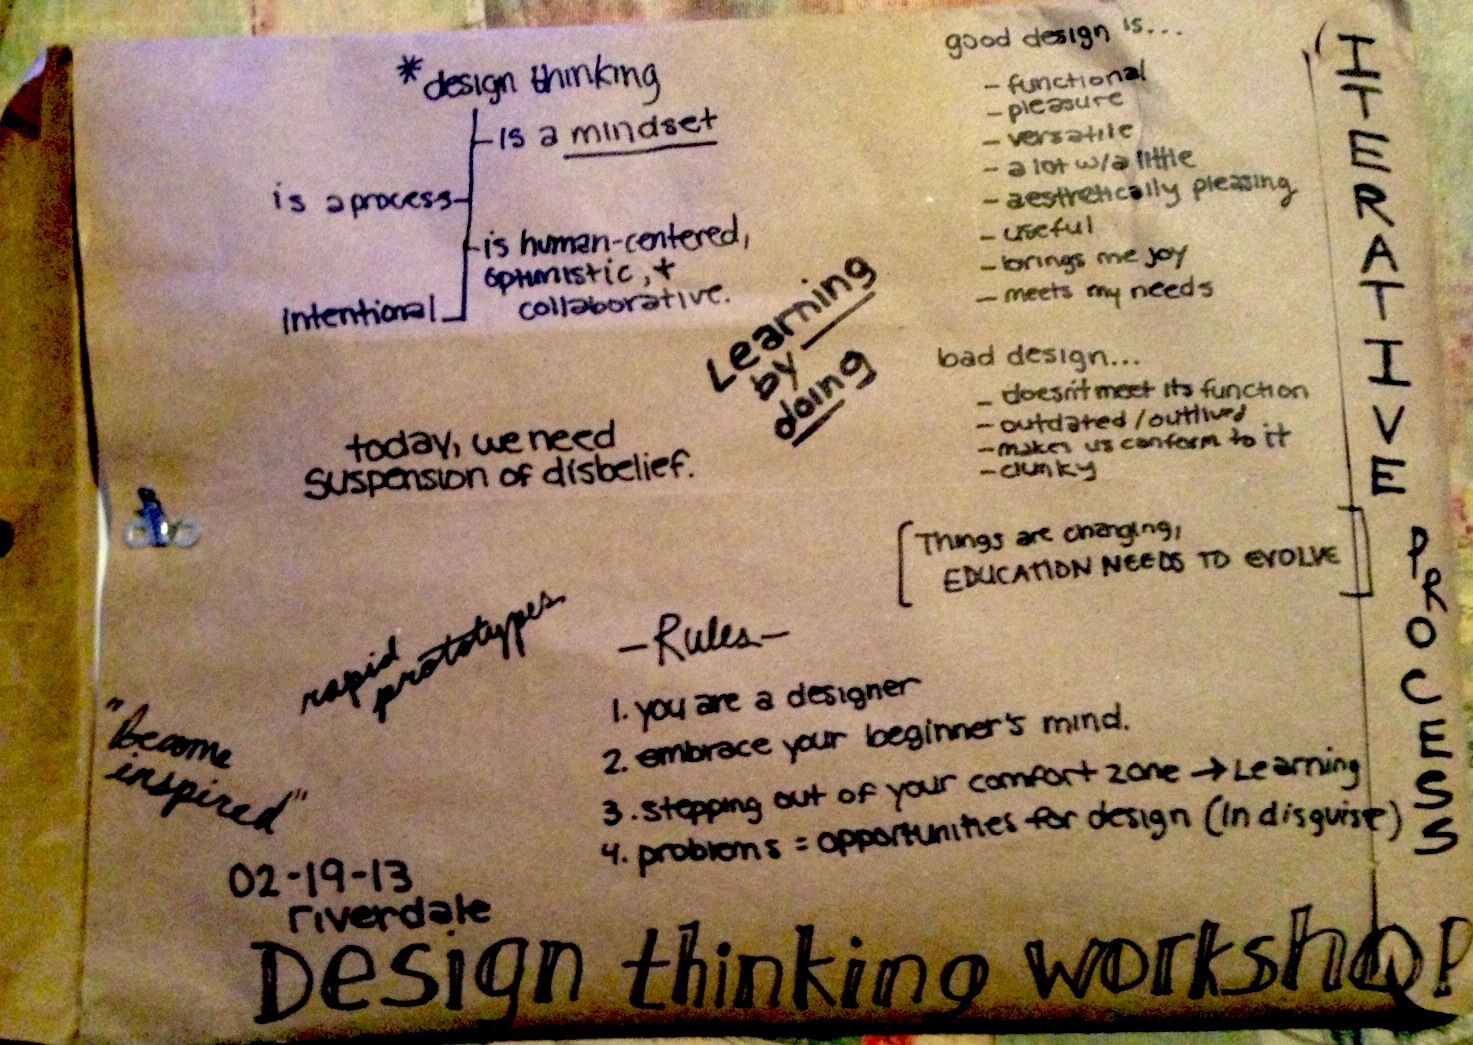 *design thinking
- is a mindset
is a process -
- is human-centered,
optimistic, +
collaborative.
Intentional
Learning
by
doing
today, we need
suspension of disbelief.
good design is...
- functional
- pleasure
- versatile
- a lot w/a little
- aesthetically pleasing
- useful
- brings me joy
- meets my needs
bad design...
- doesn't meet its function
- outdated/outlived
- makes us conform to it
- clunky
[Things are changing,
EDUCATION NEEDS TO EVOLVE]
ITERATIVE PROCESS
rapid
prototypes
"Become
inspired"
- Rules -
1. you are a designer
2. embrace your beginner's mind.
3. stepping out of your comfort zone → Learning
4. problems = opportunities for design (In disguise)
02-19-13
riverdale
Design thinking workshop